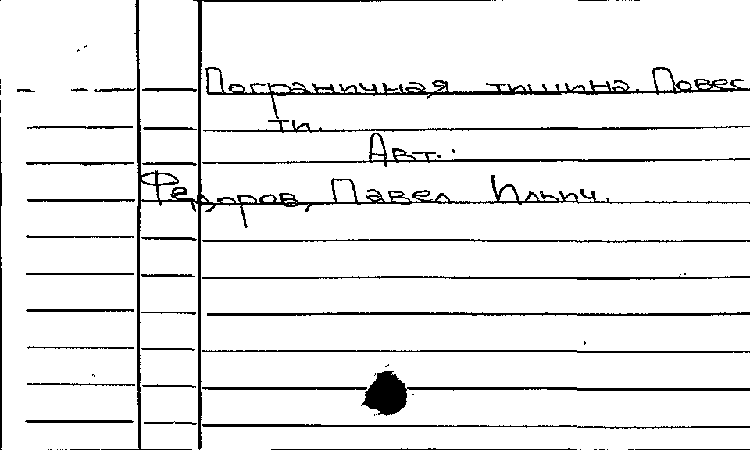 Пограничная тишина. Повес
ти.
Авт.:
Федоров, Павел Ильич.